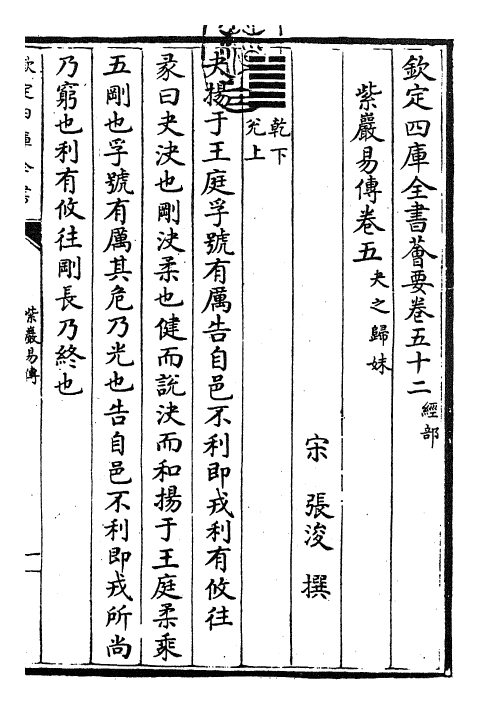 欽定四庫全書薈要卷五十二 經部
紫巖易傳卷五 夬之歸妹
宋 張浚 撰
乾下
兊上
夬揚于王庭孚號有厲告自邑不利即戎利有攸往
彖曰夬決也剛決柔也健而說決而和揚于王庭柔乘
五剛也孚號有厲其危乃光也告自邑不利即戎所尚
乃窮也利有攸往剛長乃終也
欽定四庫全書
紫巖易傳
一